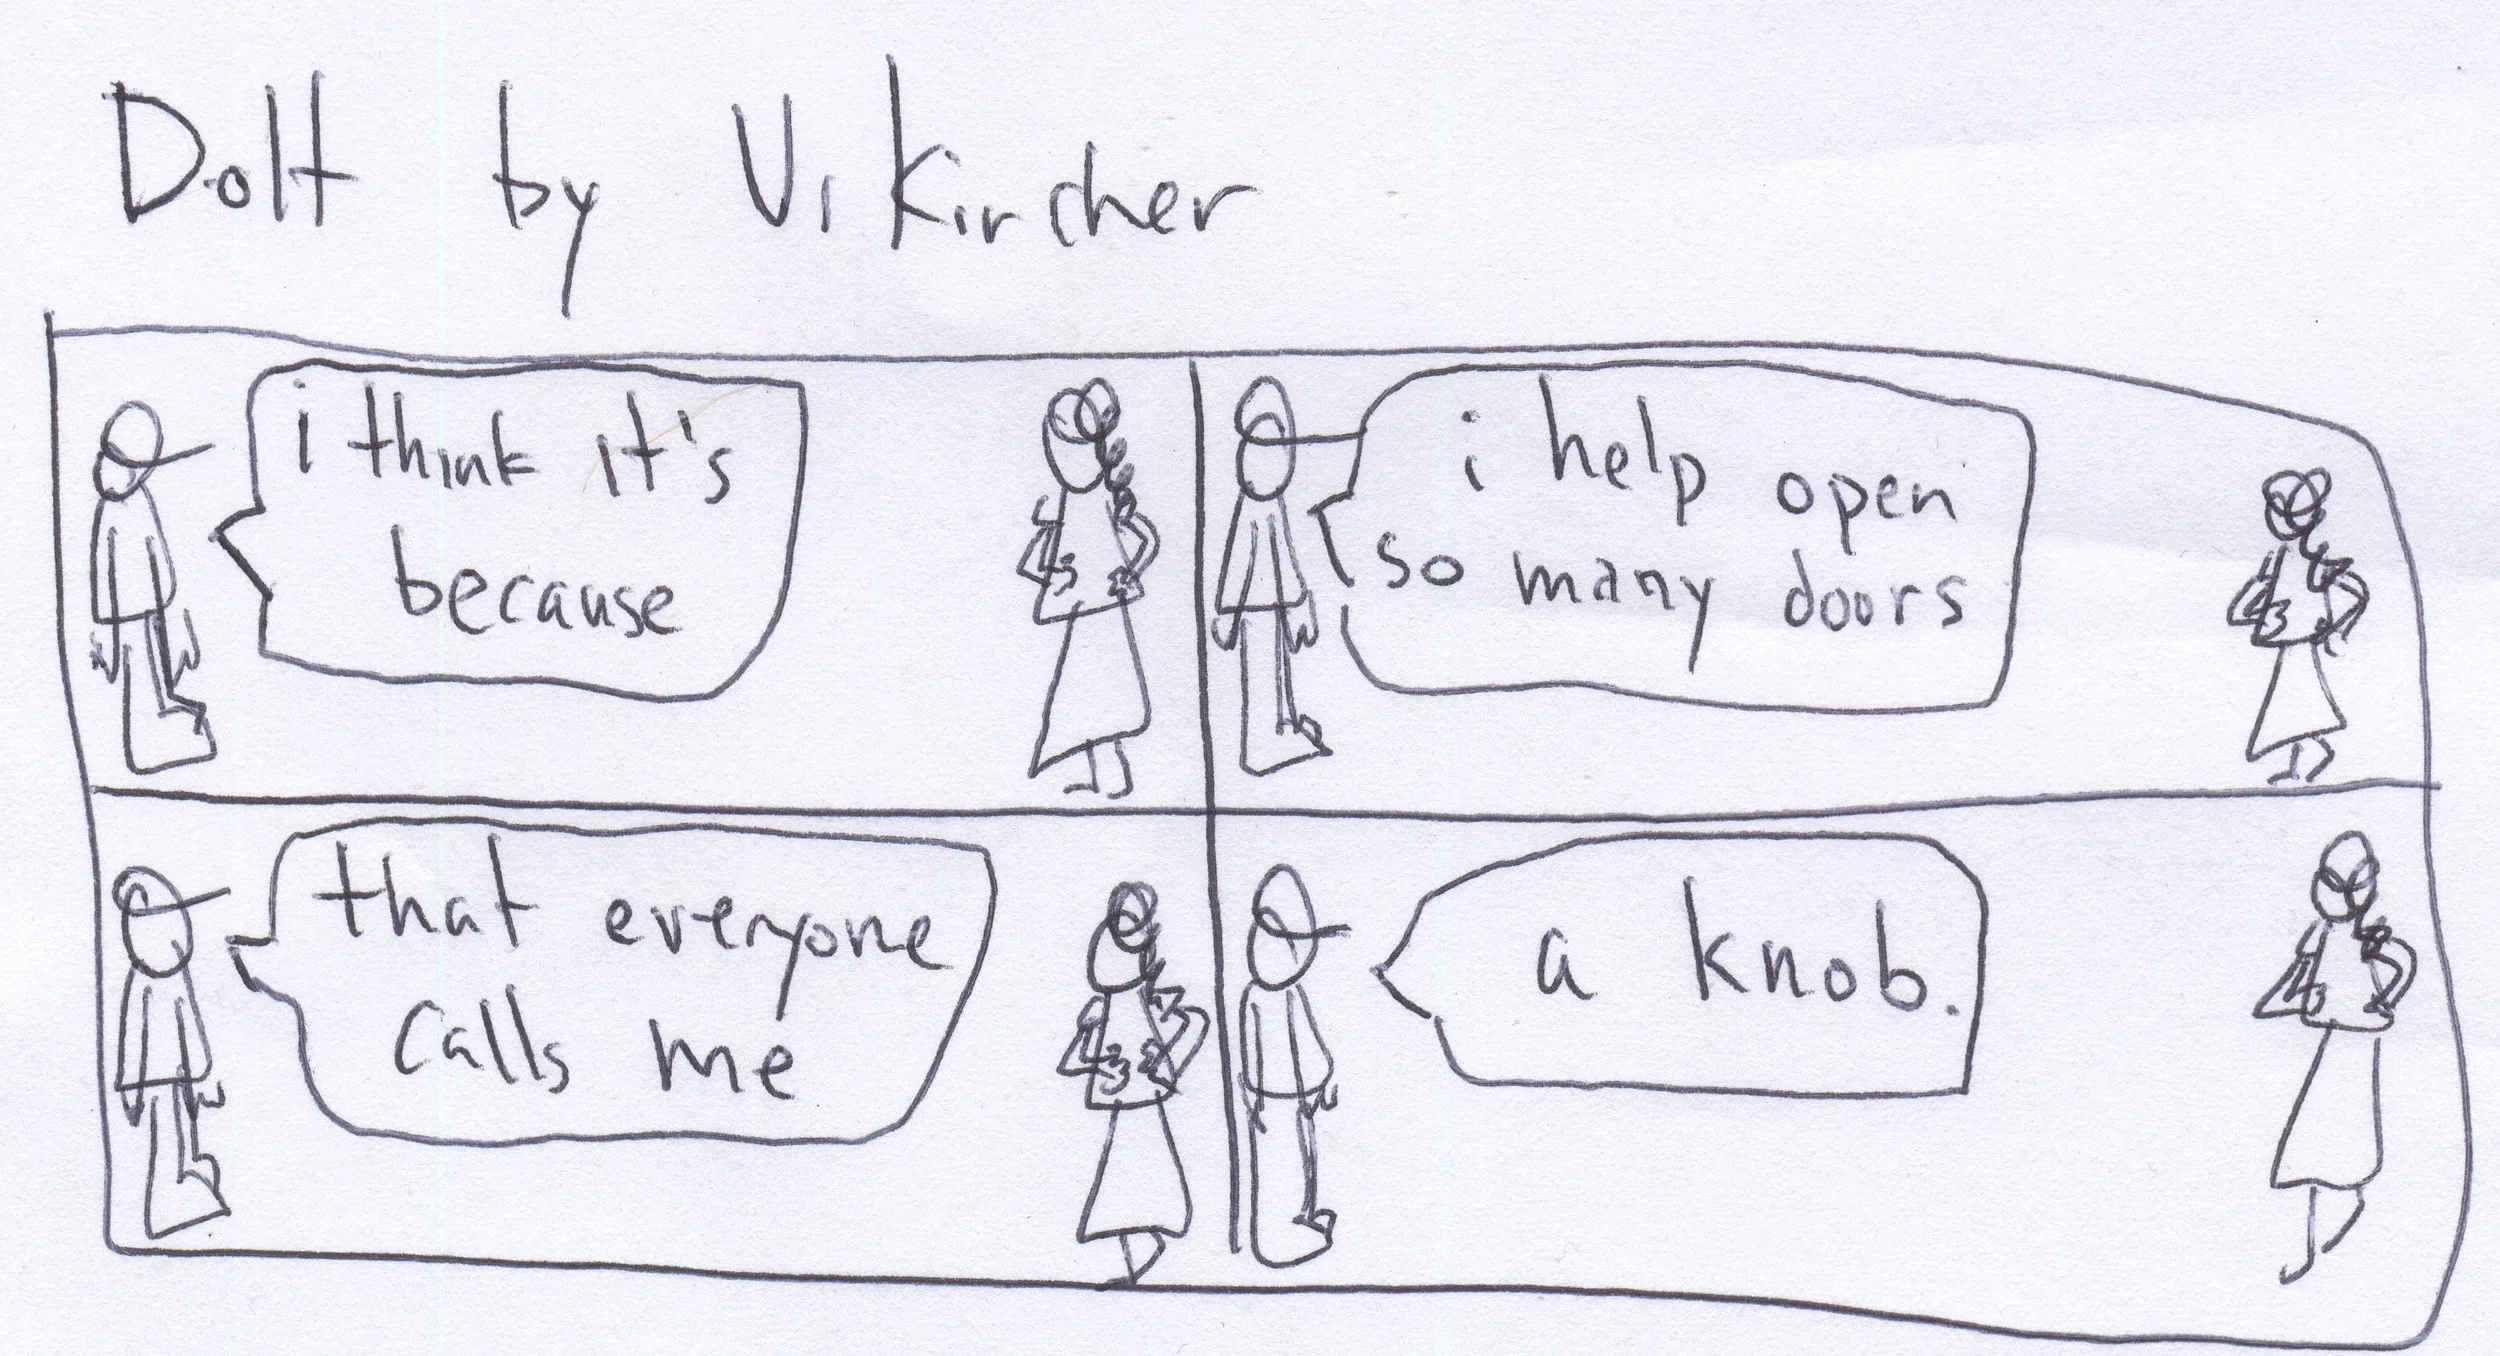 Dolt by Vi Kircher
i think it's
because
i help open
so many doors
that everyone
calls me
a knob.